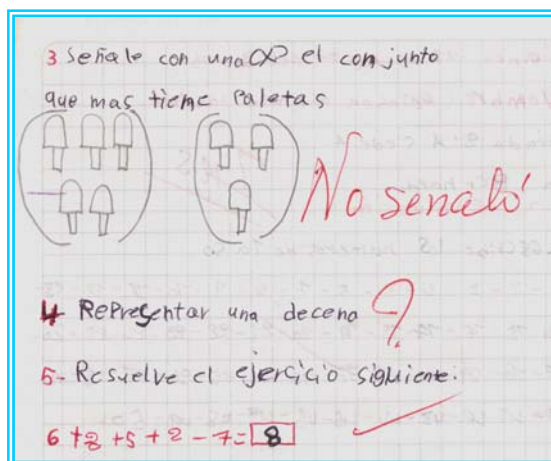 3 Señale con una ∞ el conjunto
que mas tiene Paletas
No senaló
4 Representar una decena ?
5- Resuelve el ejercicio siguiente.
6 + 2 + 5 + 2 - 7 = 8